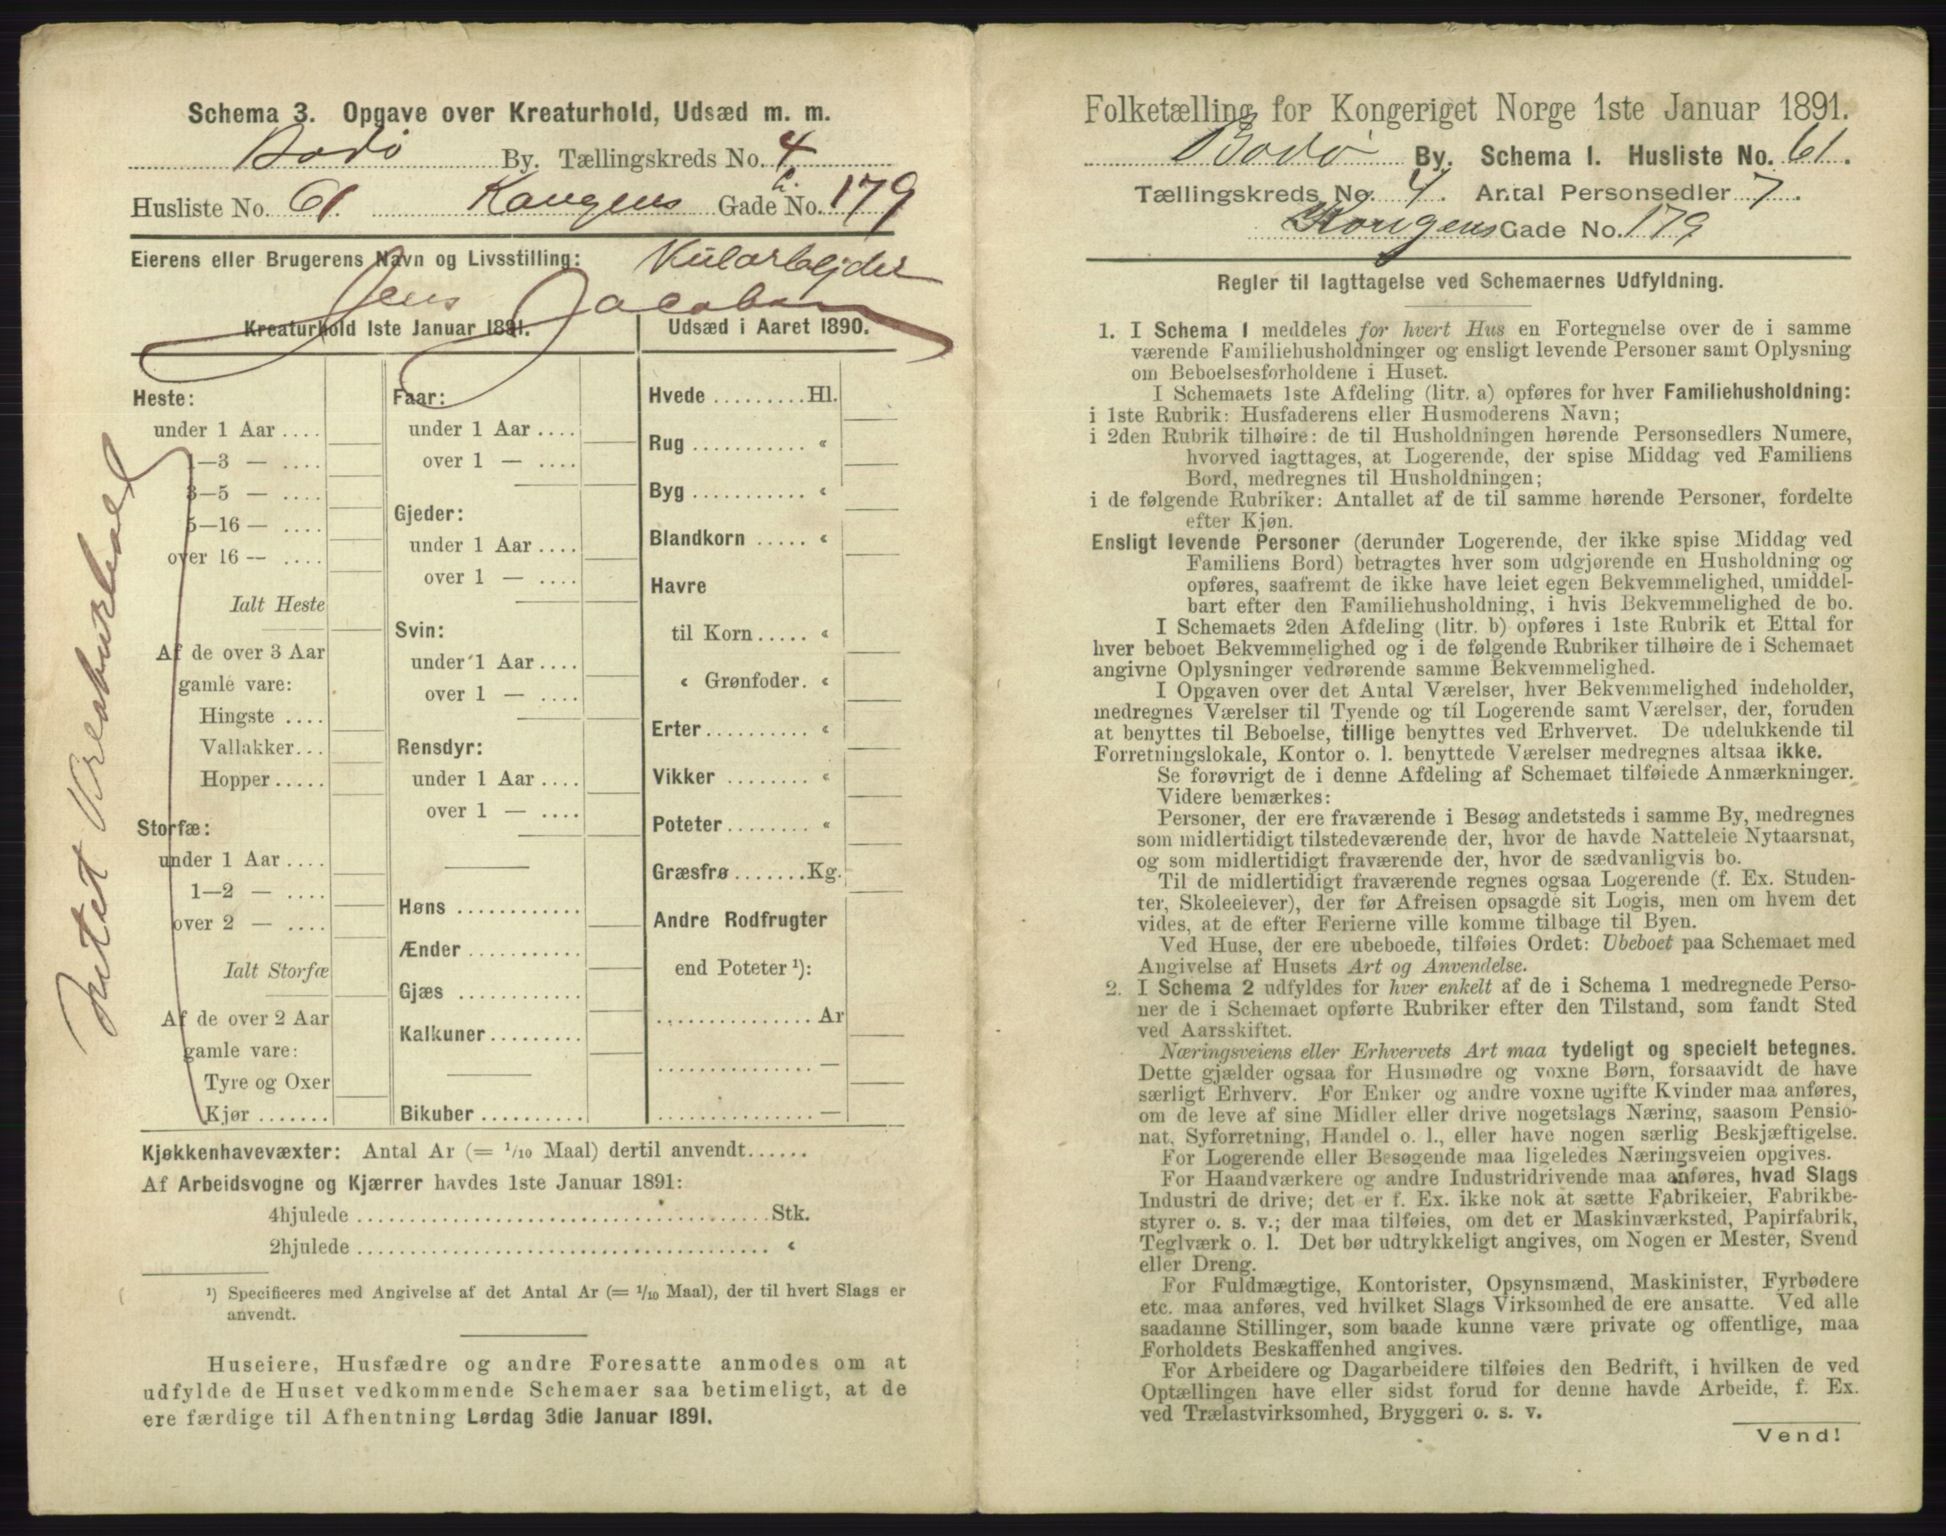 Schema 3. Opgave over Kreaturhold, Udsæd m. m.
Bodø By. Tællingskreds No. 4
Husliste No. 61. Kongens Gade No. 179
Eierens eller Brugerens Navn og Livsstilling:
Jens Jacobsen
Kreaturhold 1ste Januar 1891.
Heste:
under 1 Aar ....
1—3 — ....
3—5 — ....
5—16 — ....
over 16 — ....
Ialt Heste
Af de over 3 Aar
gamle vare:
Hingste ....
Vallakker...
Hopper .....
Storfæ:
under 1 Aar ....
1—2 — ....
over 2 — ....
Ialt Storfæ
Af de over 2 Aar
gamle vare:
Tyre og Oxer
Kjør .......
Intet Kreaturhold
Faar:
under 1 Aar ....
over 1 — ....
Gjeder:
under 1 Aar ....
over 1 — ....
Svin:
under 1 Aar ....
over 1 — ....
Rensdyr:
under 1 Aar ....
over 1 — ....
Høns ............
Ænder ...........
Gjæs ............
Kalkuner.........
Bikuber ..........
Udsæd i Aaret 1890.
Hvede .........Hl.
Rug ........... «
Byg ........... «
Blandkorn ..... «
Havre
til Korn..... «
« Grønfoder. «
Erter.......... «
Vikker ........ «
Poteter ........ «
Græsfrø .......Kg.
Andre Rodfrugter
end Poteter ¹):
............... Ar
............... —
............... —
Kjøkkenhavevæxter: Antal Ar (= 1/10 Maal) dertil anvendt......
Af Arbeidsvogne og Kjærrer havdes 1ste Januar 1891:
4hjulede ........................................Stk.
2hjulede ........................................ «
¹) Specificeres med Angivelse af det Antal Ar (= 1/10 Maal), der til hvert Slags er
anvendt.
Huseiere, Husfædre og andre Foresatte anmodes om at
udfylde de Huset vedkommende Schemaer saa betimeligt, at de
ere færdige til Afhentning Lørdag 3die Januar 1891.
Folketælling for Kongeriget Norge 1ste Januar 1891.
Bodø By. Schema I. Husliste No. 61.
Tællingskreds No. 4. Antal Personsedler 7.
Kongens Gade No. 179
Regler til Iagttagelse ved Schemaernes Udfyldning.
1. I Schema 1 meddeles for hvert Hus en Fortegnelse over de i samme
værende Familiehusholdninger og ensligt levende Personer samt Oplysning
om Beboelsesforholdene i Huset.
I Schemaets 1ste Afdeling (litr. a) opføres for hver Familiehusholdning:
i 1ste Rubrik: Husfaderens eller Husmoderens Navn;
i 2den Rubrik tilhøire: de til Husholdningen hørende Personsedlers Numere,
hvorved iagttages, at Logerende, der spise Middag ved Familiens
Bord, medregnes til Husholdningen;
i de følgende Rubriker: Antallet af de til samme hørende Personer, fordelte
efter Kjøn.
Ensligt levende Personer (derunder Logerende, der ikke spise Middag ved
Familiens Bord) betragtes hver som udgjørende en Husholdning og
opføres, saafremt de ikke have leiet egen Bekvemmelighed, umiddel-
bart efter den Familiehusholdning, i hvis Bekvemmelighed de bo.
I Schemaets 2den Afdeling (litr. b) opføres i 1ste Rubrik et Ettal for
hver beboet Bekvemmelighed og i de følgende Rubriker tilhøire de i Schemaet
angivne Oplysninger vedrørende samme Bekvemmelighed.
I Opgaven over det Antal Værelser, hver Bekvemmelighed indeholder,
medregnes Værelser til Tyende og til Logerende samt Værelser, der, foruden
at benyttes til Beboelse, tillige benyttes ved Erhvervet. De udelukkende til
Forretningslokale, Kontor o. l. benyttede Værelser medregnes altsaa ikke.
Se forøvrigt de i denne Afdeling af Schemaet tilføiede Anmærkninger.
Videre bemærkes:
Personer, der ere fraværende i Besøg andetsteds i samme By, medregnes
som midlertidigt tilstedeværende der, hvor de havde Natteleie Nytaarsnat,
og som midlertidigt fraværende der, hvor de sædvanligvis bo.
Til de midlertidigt fraværende regnes ogsaa Logerende (f. Ex. Studen-
ter, Skoleelever), der før Afreisen opsagde sit Logis, men om hvem det
vides, at de efter Ferierne ville komme tilbage til Byen.
Ved Huse, der ere ubeboede, tilføies Ordet: Ubeboet paa Schemaet med
Angivelse af Husets Art og Anvendelse.
2. I Schema 2 udfyldes for hver enkelt af de i Schema 1 medregnede Perso-
ner de i Schemaet opførte Rubriker efter den Tilstand, som fandt Sted
ved Aarsskiftet.
Næringsveiens eller Erhvervets Art maa tydeligt og specielt betegnes.
Dette gjælder ogsaa for Husmødre og voxne Børn, forsaavidt de have
særligt Erhverv. For Enker og andre voxne ugifte Kvinder maa anføres,
om de leve af sine Midler eller drive nogetslags Næring, saasom Pensio-
nat, Syforretning, Handel o. l., eller have nogen særlig Beskjæftigelse.
For Logerende eller Besøgende maa ligeledes Næringsveien opgives.
For Haandværkere og andre Industridrivende maa anføres, hvad Slags
Industri de drive; det er f. Ex. ikke nok at sætte Fabrikeier, Fabrikbe-
styrer o. s. v.; der maa tilføies, om det er Maskinværksted, Papirfabrik,
Teglværk o. l. Det bør udtrykkeligt angives, om Nogen er Mester, Svend
eller Dreng.
For Fuldmægtige, Kontorister, Opsynsmænd, Maskinister, Fyrbødere
etc. maa anføres, ved hvilket Slags Virksomhed de ere ansatte. Ved alle
saadanne Stillinger, som baade kunne være private og offentlige, maa
Forholdets Beskaffenhed angives.
For Arbeidere og Dagarbeidere tilføies den Bedrift, i hvilken de ved
Optællingen have eller sidst forud for denne havde Arbeide, f. Ex.
ved Trælastvirksomhed, Bryggeri o. s. v.
Vend!